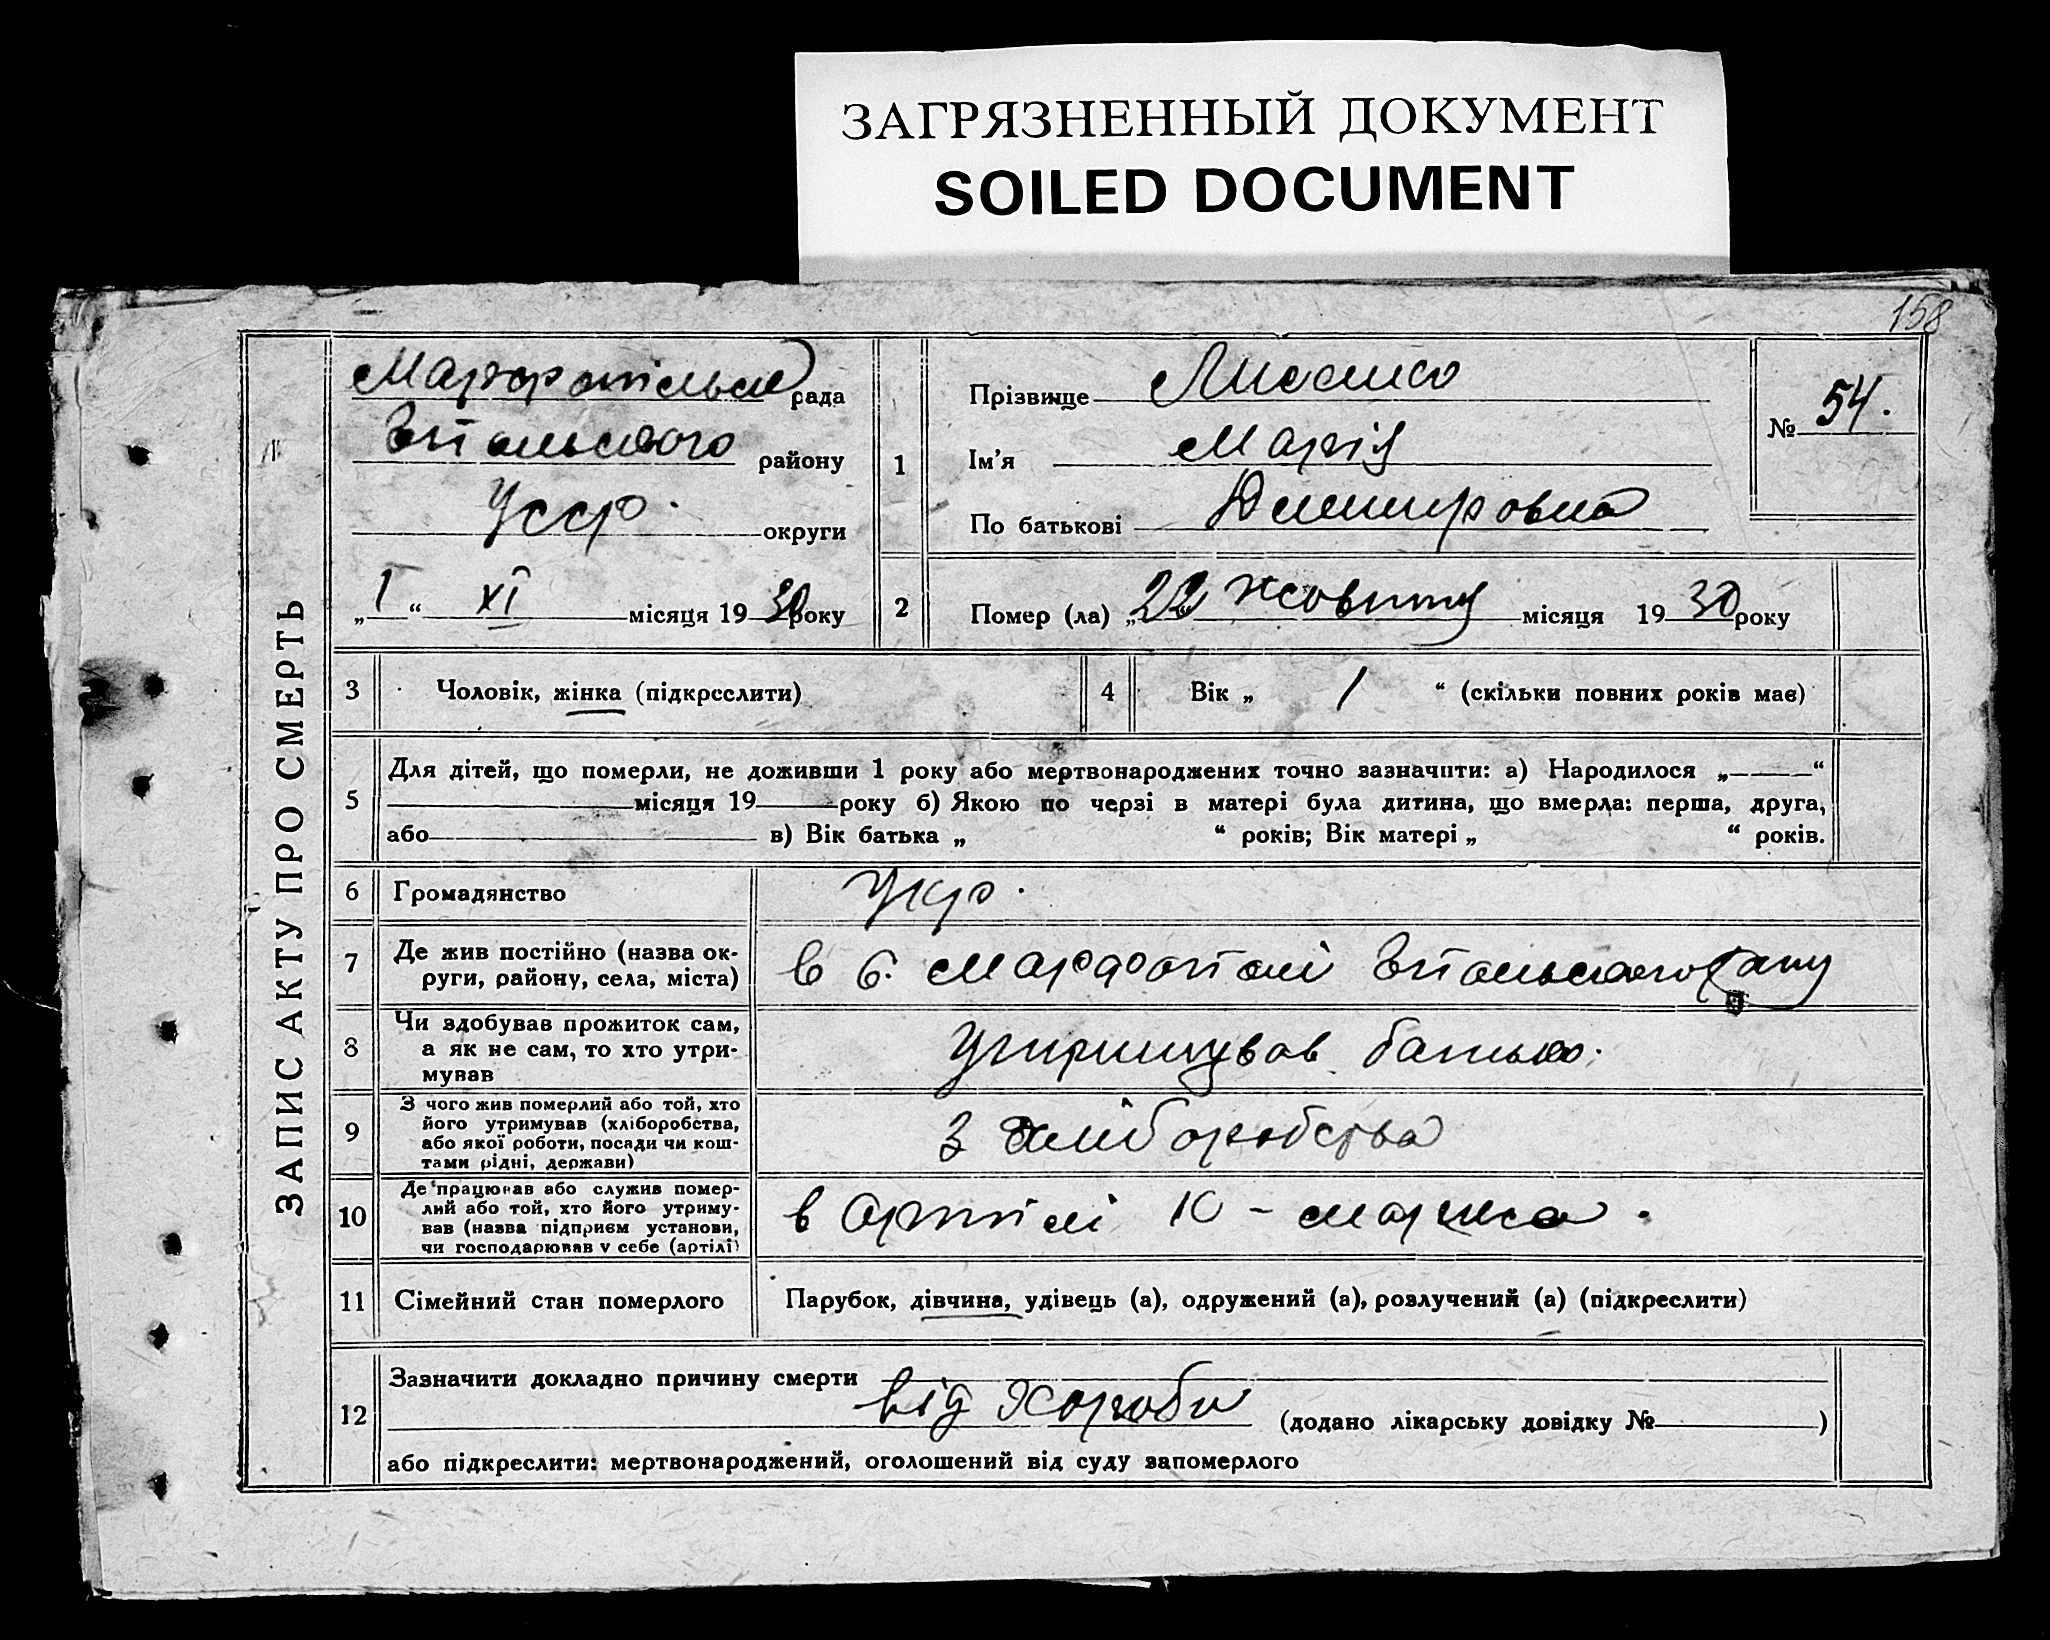 ЗАГРЯЗНЕННЫЙ ДОКУМЕНТ
SOILED DOCUMENT
158
ЗАПИС АКТУ ПРО СМЕРТЬ
рада
району
Усср.
округи
„1“ XI місяця 1930 року
1
Прізвище
Ім'я Марія
По батькові
№ 54.
2
Помер (ла) „22“ жовтня місяця 1930 року
3
Чоловік, жінка (підкреслити)
4
Вік „ 1 “ (скільки повних років має)
5
Для дітей, що померли, не доживши 1 року або мертвонароджених точно зазначити: а) Народилося „——“
місяця 19 року б) Якою по черзі в матері була дитина, що вмерла: перша, друга,
або в) Вік батька „ “ років; Вік матері „ “ років.
6
Громадянство
Укр.
7
Де жив постійно (назва ок-
руги, району, села, міста)
в с. Марфополі
8
Чи здобував прожиток сам,
а як не сам, то хто утри-
мував
Утримував батько.
9
З чого жив померлий або той, хто
його утримував (хліборобства,
або якої роботи, посади чи кош-
тами рідні, держави)
З хліборобства
10
Де працював або служив помер-
лий або той, хто його утриму-
вав (назва підприєм установи,
чи господарював у себе (артілі)
в Артілі К-маркса.
11
Сімейний стан померлого
Парубок, дівчина, удівець (а), одружений (а), розлучений (а) (підкреслити)
12
Зазначити докладно причину смерти
від хороби (додано лікарську довідку № )
або підкреслити: мертвонароджений, оголошений від суду запомерлого